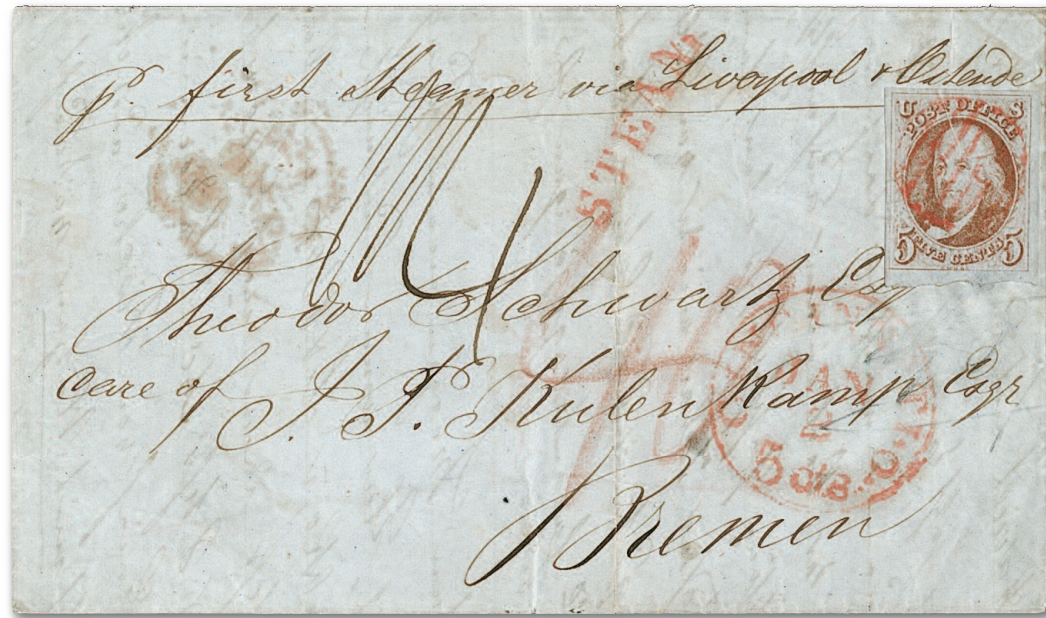 p. first Steamer via Liverpool & Ostende
STEAM
U S
POST OFFICE
FIVE CENTS
5 5
Theodor Schwartz Esq
care of J. P. Kulen Kamp Esqr
JAN
2
5 cts
Bremen